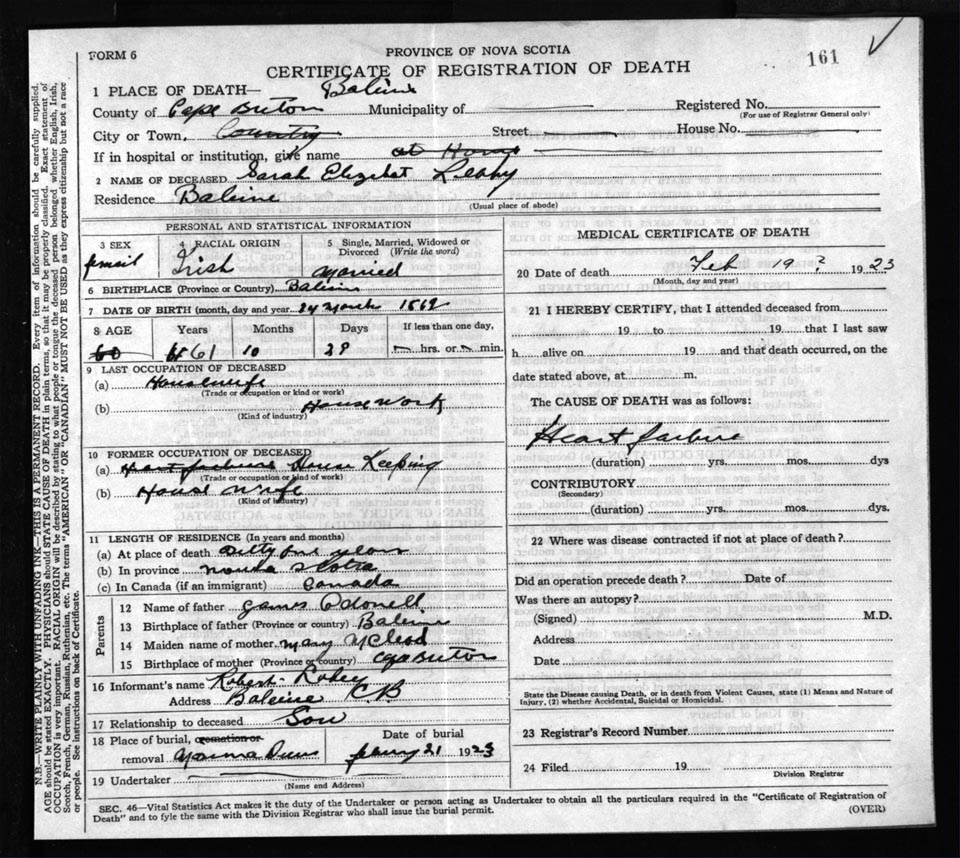 FORM 6
PROVINCE OF NOVA SCOTIA
161
CERTIFICATE OF REGISTRATION OF DEATH
1 PLACE OF DEATH— Baleine
County of Cape Briton Municipality of
Registered No.
(For use of Registrar General only)
City or Town, Country Street House No.
If in hospital or institution, give name at Home
2 NAME OF DECEASED Sarah Elizabet Leahy
Residence Baleine
(Usual place of abode)
PERSONAL AND STATISTICAL INFORMATION
3 SEX
4 RACIAL ORIGIN Irish
5 Single, Married, Widowed or Divorced (Write the word) Married
6 BIRTHPLACE (Province or Country) Baleine
7 DATE OF BIRTH (month, day and year) 24 March
8 AGE 60
Years 61
Months 10
Days 29
If less than one day,
hrs. or min.
9 LAST OCCUPATION OF DECEASED
(a) Housewife
(Trade or occupation or kind of work)
(b) House Work
(Kind of industry)
10 FORMER OCCUPATION OF DECEASED
(a) Heart failure House Keeping
(Trade or occupation or kind of work)
(b) House Wife
(Kind of industry)
11 LENGTH OF RESIDENCE (In years and months)
(a) At place of death
(b) In province Nova Scotia
(c) In Canada (if an immigrant) Canada
Parents
12 Name of father James Odonell
13 Birthplace of father (Province or country) Baleine
14 Maiden name of mother Mary McLeod
15 Birthplace of mother (Province or country) Cape Briton
16 Informant's name Robert
Address Baleine CB
17 Relationship to deceased Son
18 Place of burial, cremation or
removal
Date of burial
21 1923
19 Undertaker
(Name and Address)
MEDICAL CERTIFICATE OF DEATH
20 Date of death Feb 19 ? 1923
(Month, day and year)
21 I HEREBY CERTIFY, that I attended deceased from
19 to 19 that I last saw
h alive on 19 and that death occurred, on the
date stated above, at m.
The CAUSE OF DEATH was as follows:
Heart failure
(duration) yrs. mos. dys
CONTRIBUTORY
(Secondary)
(duration) yrs. mos. dys.
22 Where was disease contracted if not at place of death?
Did an operation precede death? Date of
Was there an autopsy?
(Signed) M.D.
Address
Date
State the Disease causing Death, or in death from Violent Causes, state (1) Means and Nature of
Injury, (2) whether Accidental, Suicidal or Homicidal.
23 Registrar's Record Number
24 Filed 19
Division Registrar
SEC. 46—Vital Statistics Act makes it the duty of the Undertaker or person acting as Undertaker to obtain all the particulars required in the "Certificate of Registration of
Death" and to fyle the same with the Division Registrar who shall issue the burial permit.
(OVER)
N.B.—WRITE PLAINLY WITH UNFADING INK—THIS IS A PERMANENT RECORD. Every item of information should be carefully supplied.
AGE should be stated EXACTLY. PHYSICIANS should STATE CAUSE OF DEATH in plain terms, so that it may be properly classified. Exact statement of
OCCUPATION is very important. RACIAL ORIGIN will be described by stating to what people or tongue the deceased person belonged whether English, Irish,
Scotch, French, German, Russian, Ruthenian, etc. The terms "AMERICAN" OR "CANADIAN" MUST NOT BE USED as they express citizenship but not a race
or people. See instructions on back of Certificate.